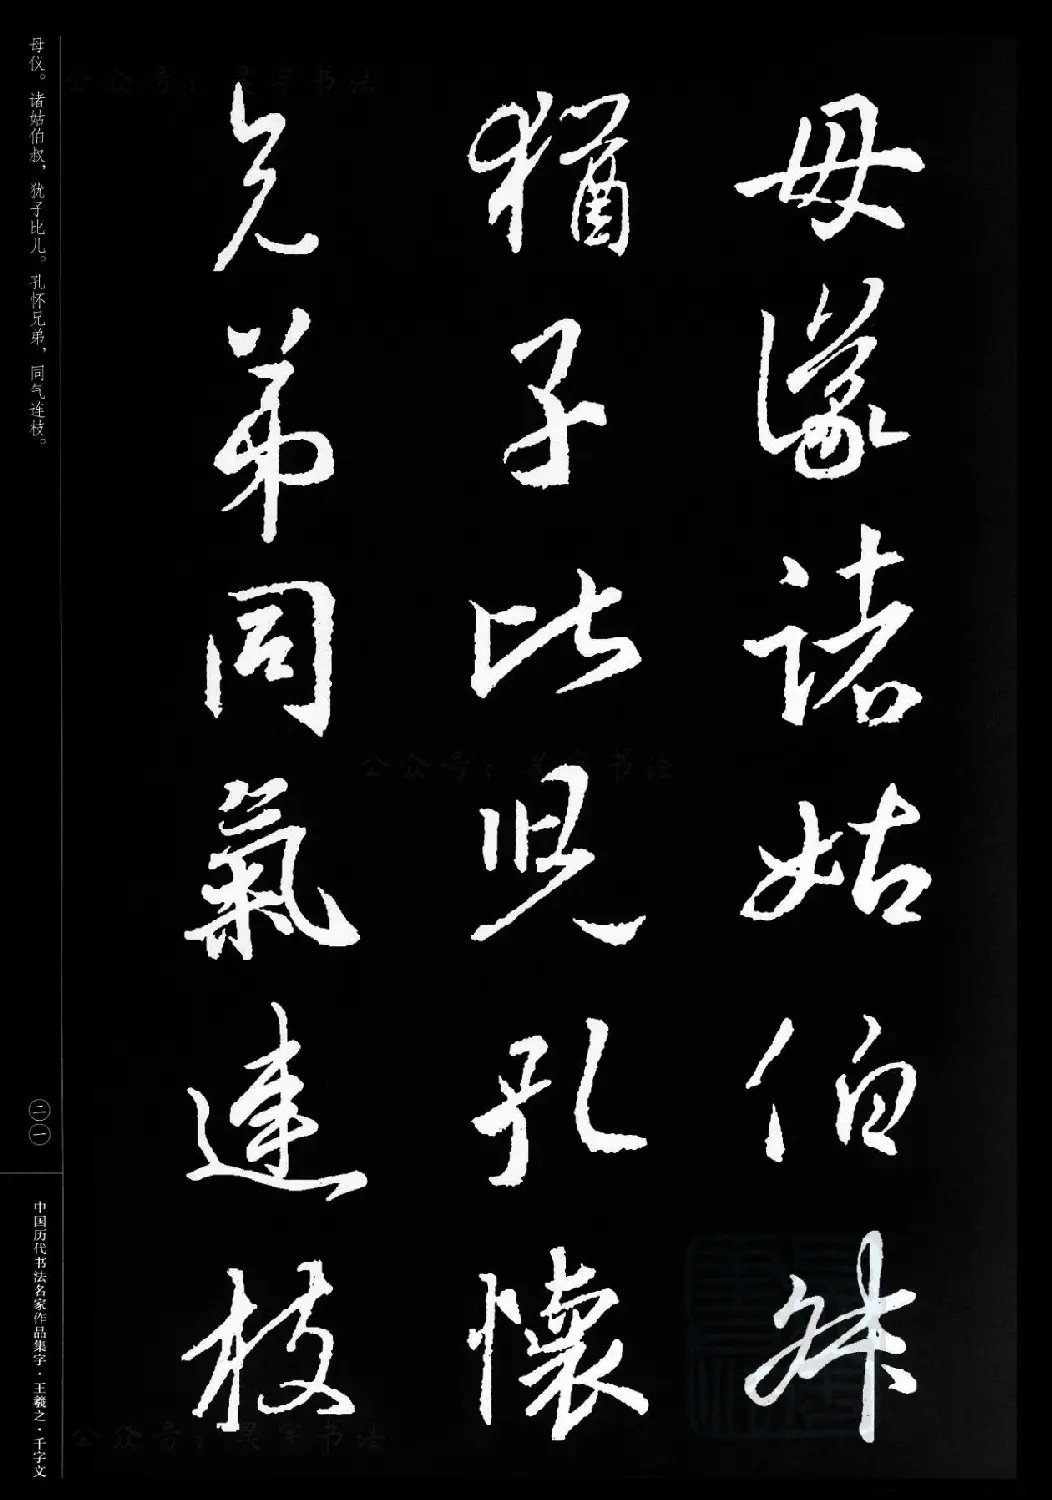 母儀諸姑伯叔
猶子比兒孔懷
兄弟同氣連枝
母仪。诸姑伯叔，犹子比儿。孔怀兄弟，同气连枝。
二一
中国历代书法名家作品集字·王羲之·千字文
公众号：昊宇书法